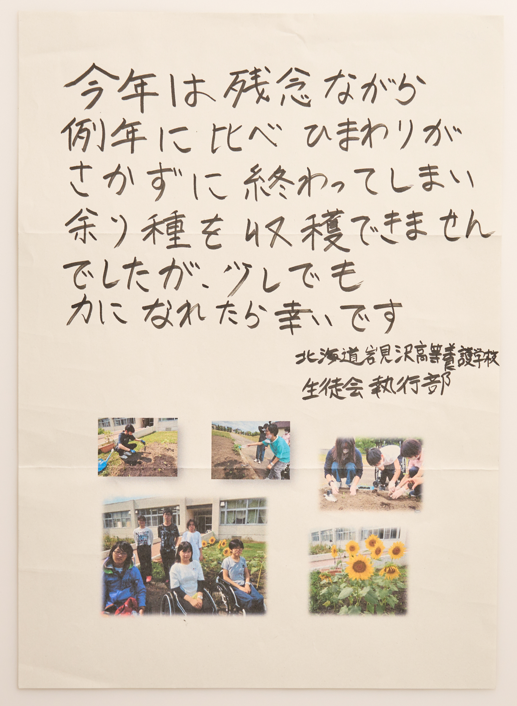 今年は残念ながら
例年に比べひまわりが
さかずに終わってしまい
余り種を収穫できません
でしたが、少しでも
力になれたら幸いです
北海道岩見沢高等養護学校
生徒会執行部